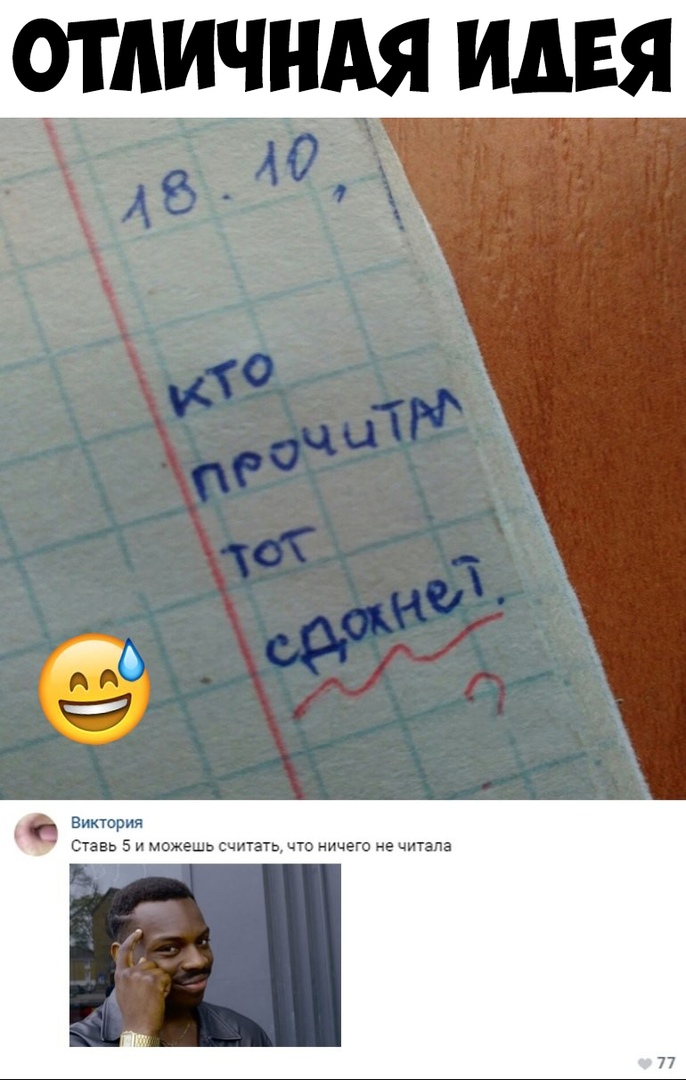 ОТЛИЧНАЯ ИДЕЯ
18.10,
кто
прочитал
тот
сдохнет.
?
Виктория
Ставь 5 и можешь считать, что ничего не читала
77